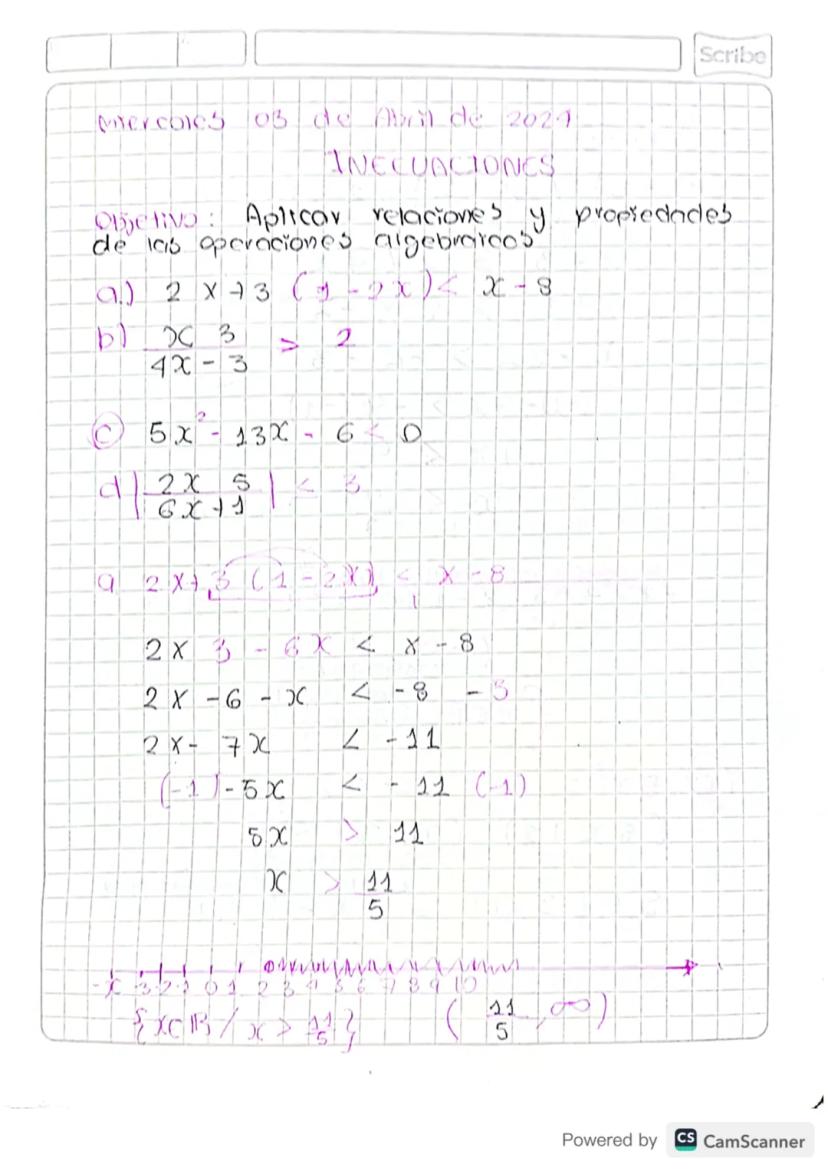 Scribe
Miercoles 03 de Abril de 2021
INECUACIONES
Objetivo: Aplicar relaciones y propiedades
de las operaciones algebraicas
a.) 2x+3 (1-2x) < x-8
b) x 3 / 4x-3 > 2
c) 5x²-13x-6 < 0
d | 2x 5 / 6x+1 | < 3
a 2x+3 (1-2x) < x-8
2x 3 - 6x < x-8
2x -6 - x < -8 -3
2x- 7x < -11
(-1) -5x < -11 (-1)
5x > 11
x > 11/5
-x -3 -2 -1 0 1 2 3 4 5 6 7 8 9 10
{x∈R / x > 11/5} (11/5, ∞)
Powered by CS CamScanner